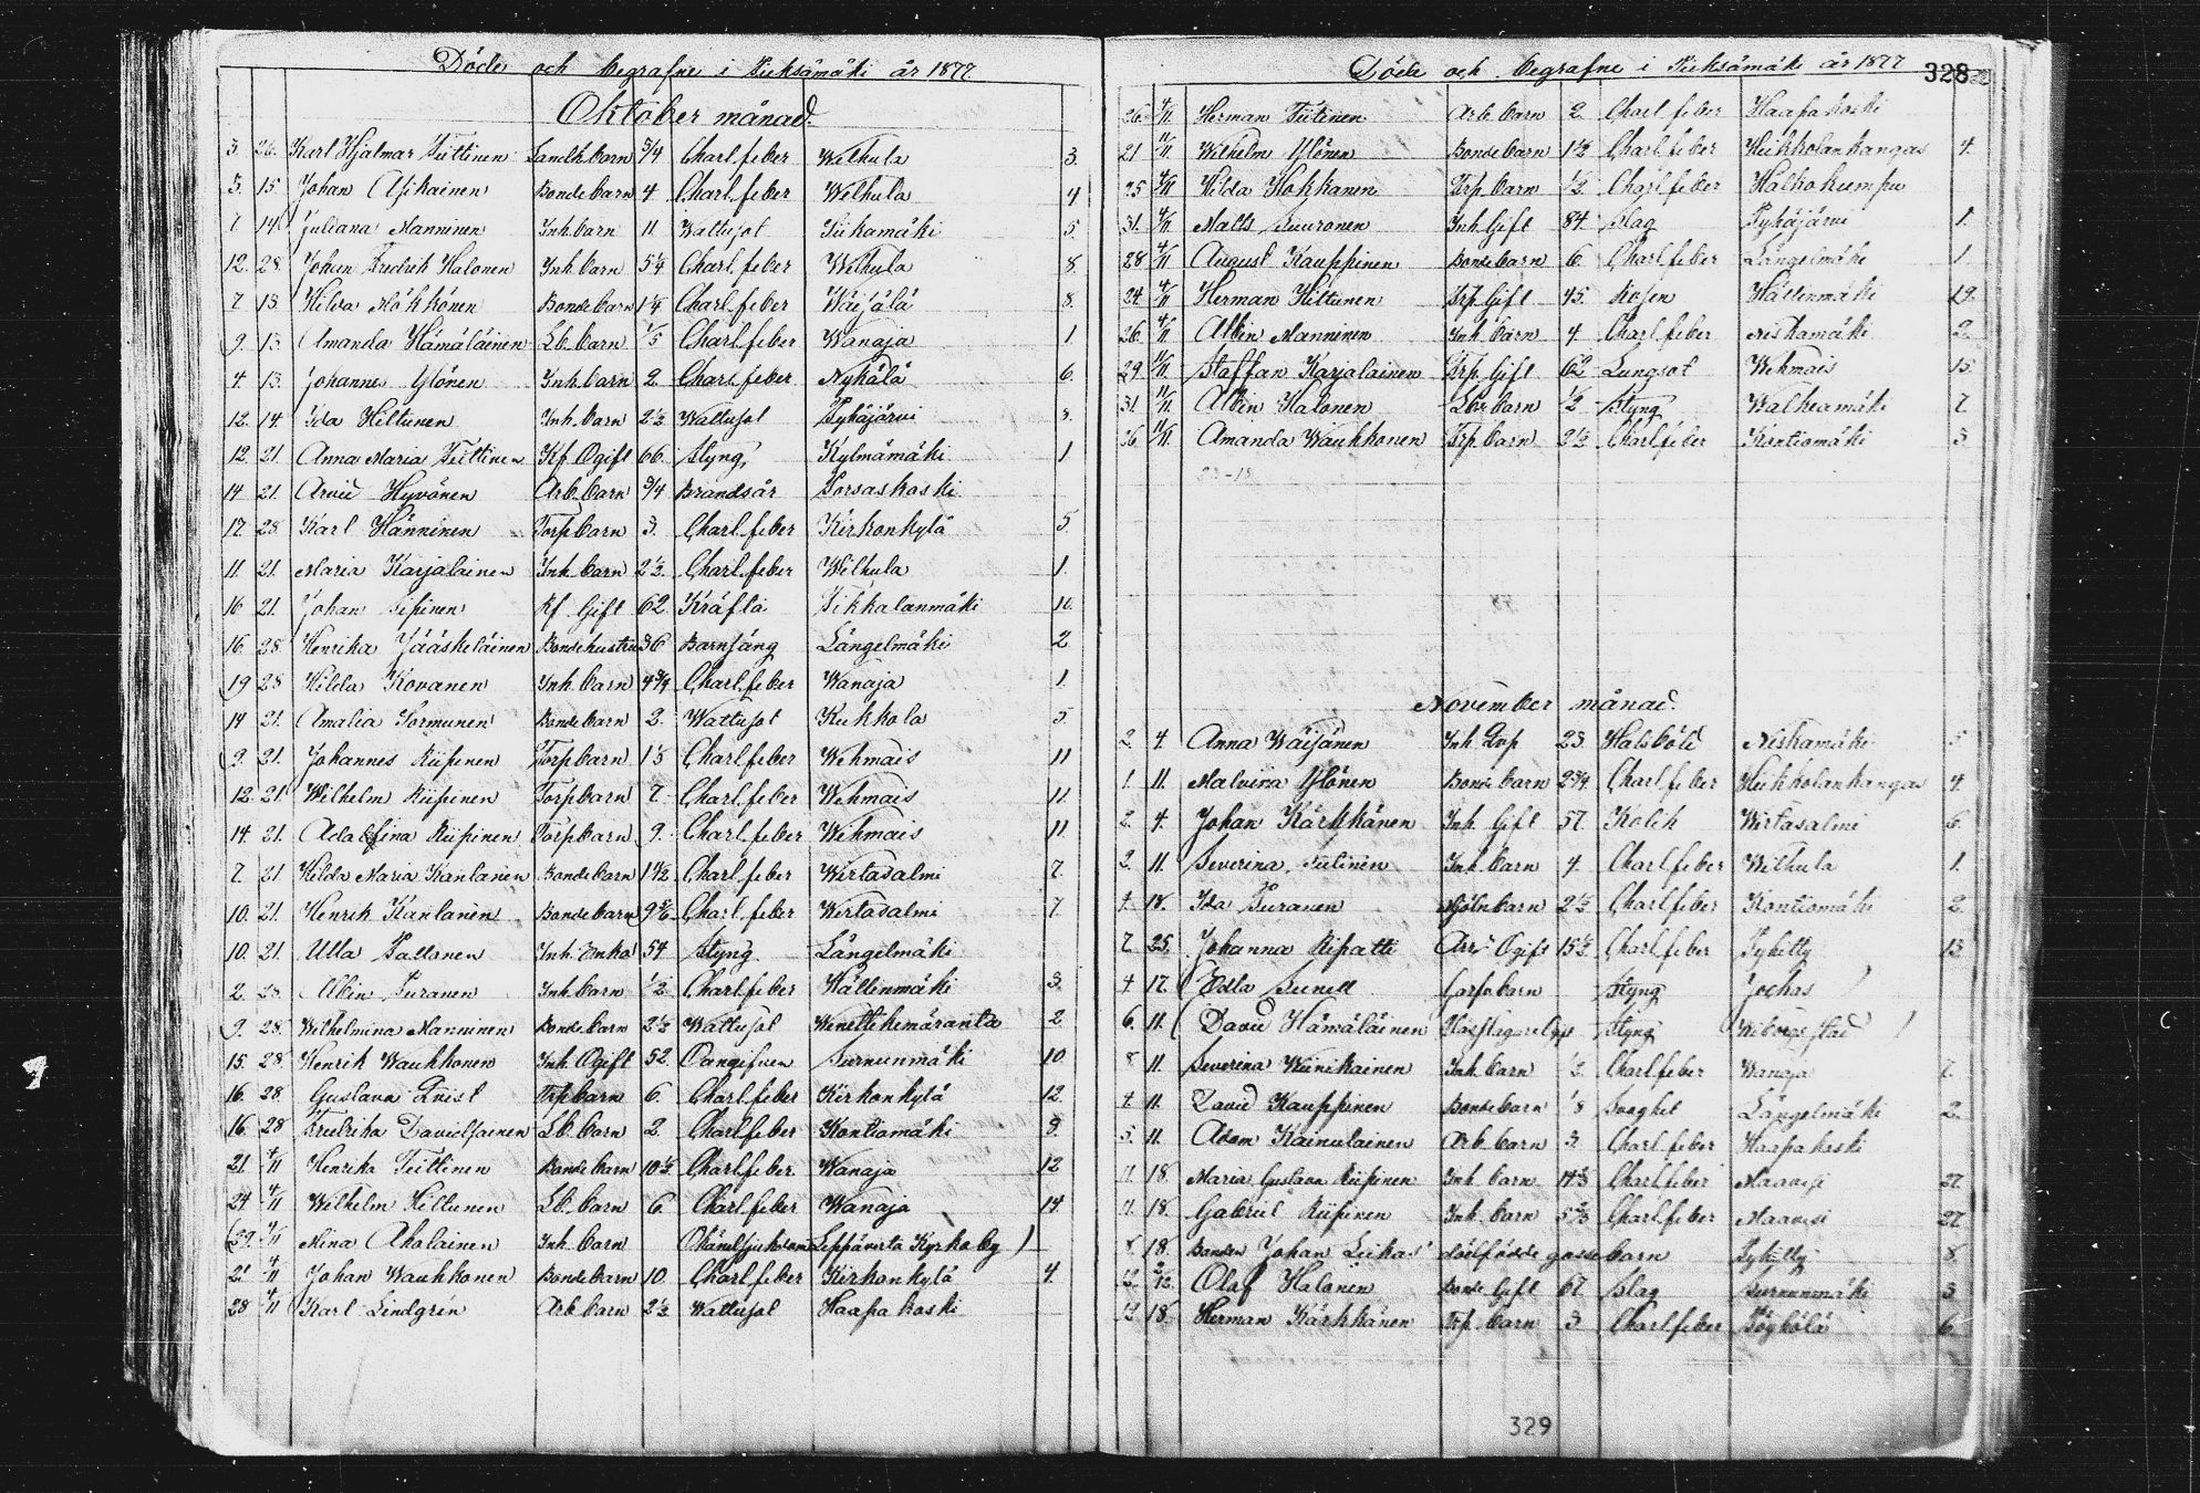 Döde och begrafne i Pieksämäki år 1877.
Oktober månad.
3. 26. Karl Hjalmar Tiittinen Landth. barn 3/4 Charl. feber Welhula 3.
3. 15. Johan Asikainen Bonde barn 4 Charl. feber Welhula 4
7. 14 Juliana Manninen Inh. barn 11 Wattusot Siikamäki 5.
12. 28. Johan Fredrik Halonen Inh. barn 5 1/4 Charl. feber Welhula 8.
7 13. Hilda Mökkönen Bonde barn 1 1/4 Charl. feber Waijälä 8.
9. 13. Amanda Hämäläinen Lb. barn 1/5 Charl. feber Wanaja 1
4. 13. Johannes Ylönen Inh. barn 2. Charl. feber Nykälä 6.
12. 14. Ida Hiltunen Inh. barn 2 1/2 Wattusot Pyhäjärvi 3.
12. 21. Anna Maria Tiittinen Kf Ogift 66. Styng Kylmämäki 1
14 21. Arvid Hyvönen Arb. barn 3/4 Brandsår Sorsaskoski
17. 28. Karl Hänninen Torp barn 3. Charl. feber Kirkonkylä 5.
11. 21. Maria Karjalainen Inh. barn 2 1/2. Charl. feber Welhula 1.
16 21. Johan Sipinen Kf Gift 62. Kräfta Pikkalanmäki 10.
16. 28. Henrika Jääskeläinen Bonde hustru 36 Barnsäng Längelmäki 2
19 28 Hilda Kovanen Inh. barn 4 3/4 Charl. feber Wanaja 1.
14 21. Amalia Sormunen Bonde barn 2. Wattusot Kukkola 5.
9. 21. Johannes Riipinen Torp barn 1 1/3 Charl. feber Wehmais 11
12. 21. Wilhelm Riipinen Torp barn 7. Charl. feber Wehmais 11.
14. 21. Adolfina Riipinen Torp barn 9. Charl. feber Wehmais 11
7. 21. Hilda Maria Kanlanen Bonde barn 1 1/2 Charl. feber Wirtasalmi 7.
10. 21. Henrik Kanlanen Bonde barn 9 5/6 Charl. feber Wirtasalmi 7.
10. 21. Ulla Pallonen Inh. Enka 54 Styng Längelmäki
2. 23. Albin Puranen Inh. barn 1/2 Charl. feber Hällinmäki 3.
9. 28. Wilhelmina Manninen Bonde barn 2 1/2 Wattusot Wenettekemäranta 2
15. 28. Henrik Waukkonen Inh. Ogift 52. Oangifven Surnunmäki 10.
16. 28 Gustava Qvist Trp barn 6. Charl. feber Kirkonkylä 12.
16. 28 Fredrika Davidsainen Lb. barn 2. Charl. feber Kontiomäki 3.
21. 4/11 Henrika Teittinen Bonde barn 10 1/2 Charl. feber Wanaja 12
24 4/11 Wilhelm Hiltunen Lb. barn 6. Charl. feber Wanaja 14.
(29. 4/11 Mina Aholainen Inh. barn Okänd sjukdom Leppävirta Kyrkoby )
21 4/11 Johan Waukkonen Bonde barn 10. Charl. feber Kirkonkylä 4.
28 4/11 Karl Lindgrén Arb. barn 2 1/2 Wattusot Haapakoski
Döde och begrafne i Pieksämäki år 1877 328
26. 4/11. Herman Tiitinen Arb. barn 2. Charl. feber Haapakoski
21 11/11. Wilhelm Ylönen Bonde barn 1 1/2 Charl. feber Heikkolankangas 4.
25 4/11 Hilda Hokkanen Trp. barn 1/2 Charl. feber Halkokumpu
31. 4/11. Matts Suuronen Inh. Gift 84. Slag Pyhäjärvi 1.
28 4/11 August Kauppinen Bonde barn 6. Charl. feber Längelmäki 1
24 4/11 Herman Hiltunen Trp Gift 45. Rosen Hällinmäki 19.
26. 4/11 Albin Manninen Inh. barn 4. Charl. feber Neskamäki 2.
29. 11/11. Staffan Karjalainen Trp. Gift 62 Lungsot Wehmais 15.
31. 11/11. Albin Halonen Lbr barn 1/2 Styng Walkeamäki 7.
26 11/11. Amanda Waukkonen Trp. barn 2 1/2 Charl. feber Kontiomäki 3
November månad.
2. 4. Anna Waijänen Inh. 23. Halsböld Neskamäki 5
1. 11. Malvina Ylönen Bonde barn 2 3/4 Charl. feber Heikkolankangas 4.
2. 4. Johan Kärkkänen Inh. Gift 57. Kolik Wirtasalmi 6.
2. 11. Severina Tiitinen Inh. barn 4. Charl. feber Welhula 1.
4. 18. Ida Puranen Mjöln. barn 2 1/2 Charl. feber Kontiomäki 2.
7. 25. Johanna Ripatti Arr. Ogift 15 1/2 Charl. feber Pyhitty 13
4 17. (Edla Sunell Garfv. barn Styng Jockas )
6. 11. (David Hämäläinen Styng Wiborgs stad )
8 11. Severina Wiinikainen Inh. barn 1/2. Charl. feber Wanaja 7.
4. 11. David Kauppinen Bonde barn 1/8 Svaghet Längelmäki 2.
5. 11. Adam Kainulainen Arb. barn 3. Charl. feber Haapakoski
11 18. Maria Gustava Riipinen Inh. barn Charl. feber Maavesi 27.
11. 18. Gabriel Riipinen Inh. barn 5 2/3 Charl. feber Maavesi 27.
8. 18. Bonden Johan Liikas' dödfödde gosse barn Pyhitty 8.
12. 2/12. Olof Halonen Bonde Gift 67. Slag Surnunmäki 3
12 18. Herman Kärkkänen Trp. barn 3 Charl. feber Pöyhölä 6.
329